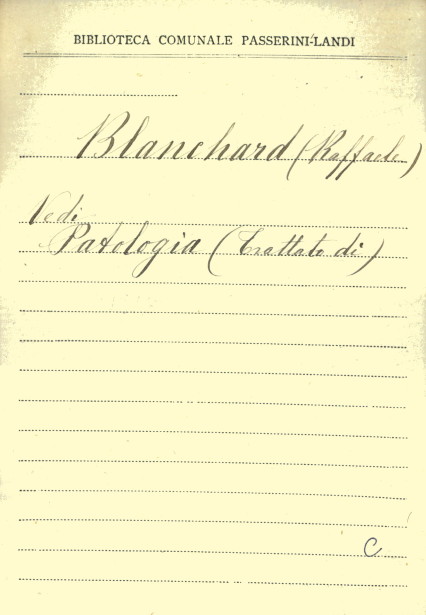 BIBLIOTECA COMUNALE PASSERINI-LANDI
Blanchard (Raffaele)
Vedi
Patologia (Trattato di)
C